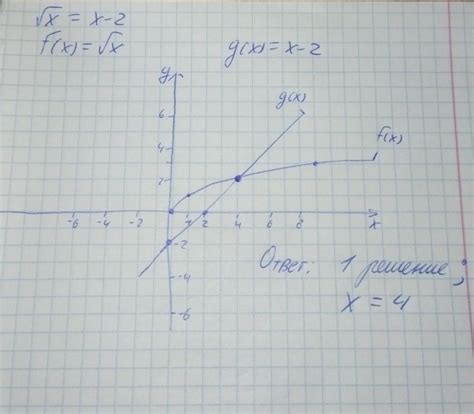 √x = x-2
f(x)=√x
g(x)=x-2
y
g(x)
f(x)
6
4
2
-6 -4 -2 0 1 2 4 6 8 x
-2
-4
-6
Ответ: 1 решение;
x = 4